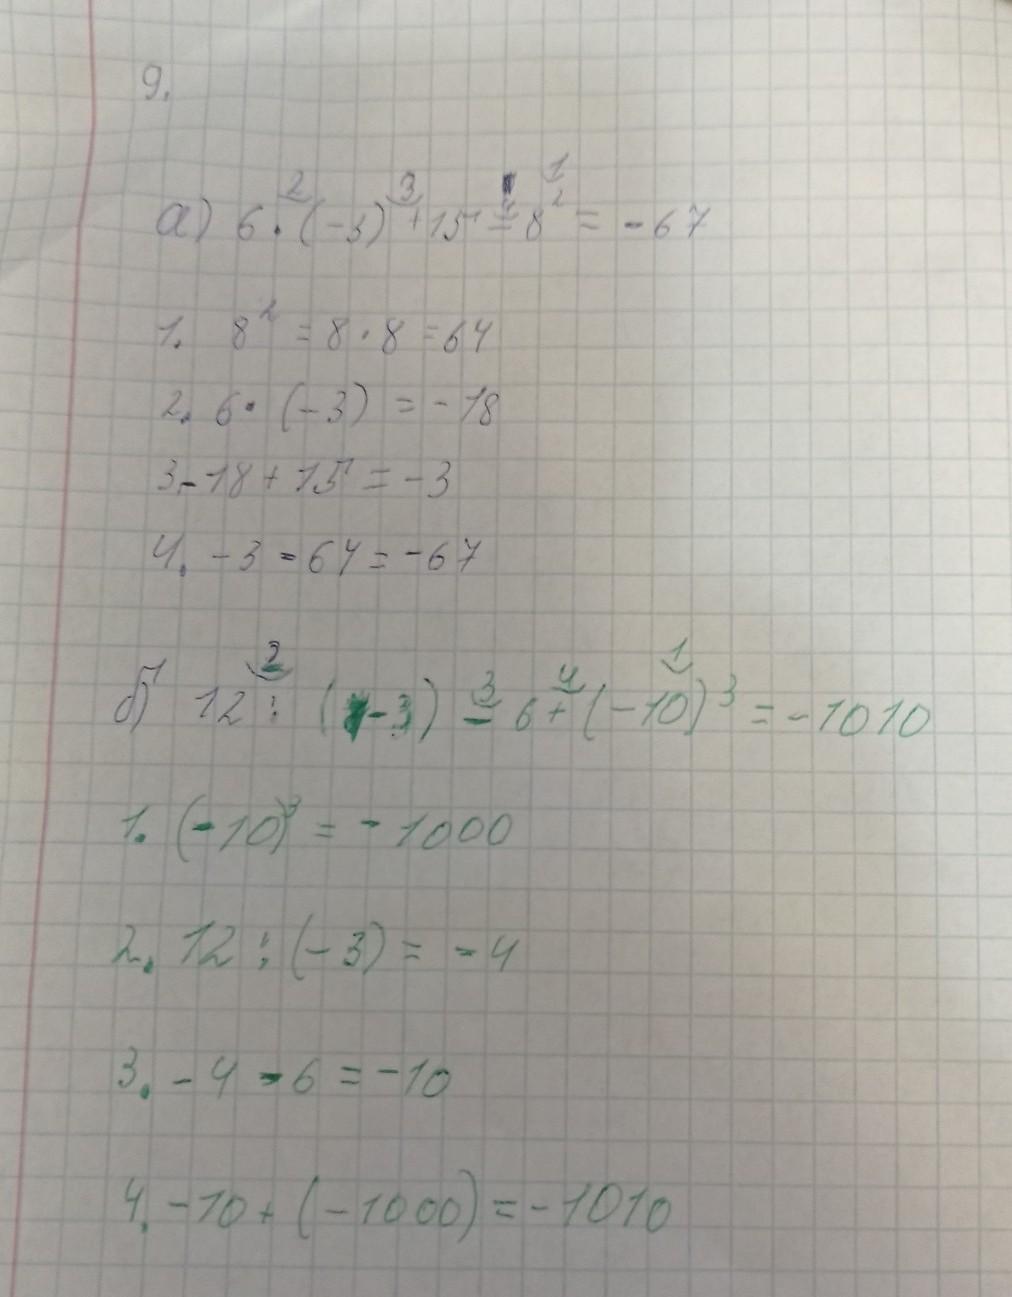 9.
а) 6 · (-3) + 15 - 8² = -67
1. 8² = 8 · 8 = 64
2. 6 · (-3) = -18
3. -18 + 15 = -3
4. -3 - 64 = -67
б) 12 : (-3) - 6 + (-10)³ = -1010
1. (-10)³ = -1000
2. 12 : (-3) = -4
3. -4 - 6 = -10
4. -10 + (-1000) = -1010